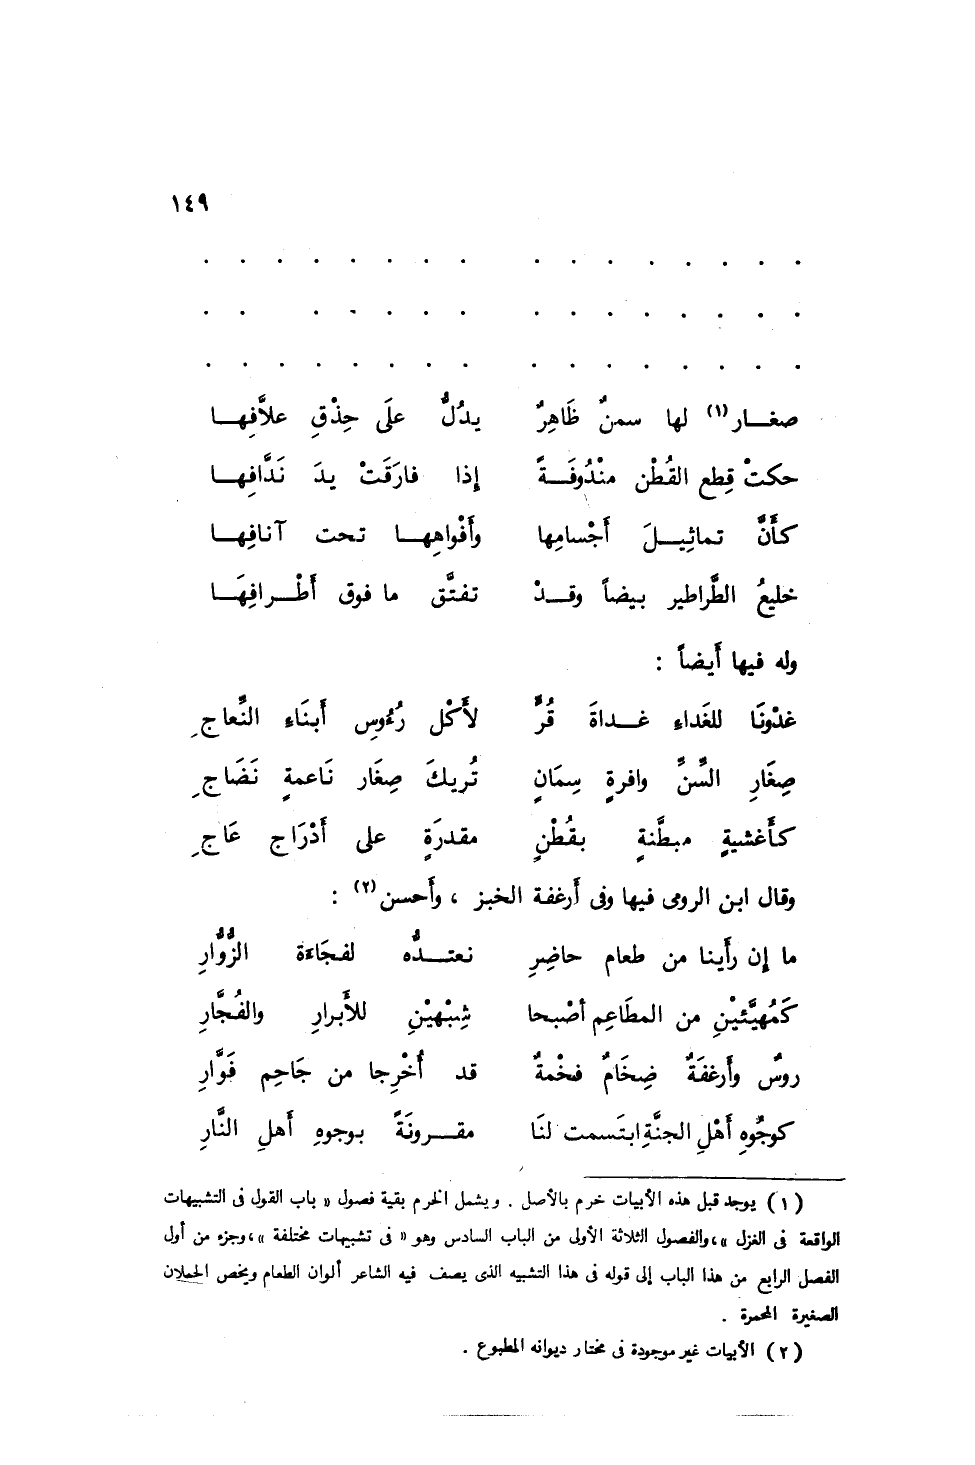 ١٤٩
. . . . . . . . . . . . . . . .
. . . . . . . . . . . . . . .
. . . . . . . . . . . . . . . .
صغـار(١) لها سمنٌ ظَاهِرٌ يدُلُّ علَى حِذْقِ علاَّفِهـا
حكتْ قِطع القُطْن منْدُوفَـةً إذا فارَقَتْ يدَ نَدَّافِهـا
كأَنَّ تماثِيـلَ أَجْسامِها وأَفْواهِهـا تحت آنافِهـا
خليعُ الطَّراطير بيضاً وقـدْ تفتَّق ما فوق أَطْـرافِهَـا
وله فيها أَيضاً :
غدْونَا للغَداء غـداةَ قُرٍّ لأَكْل رُءُوس أَبنَاء النِّعاجِ
صِغَارِ السِّنِّ وافرةٍ سِمَانٍ تُريكَ صِغَار نَاعمةٍ نَضَاجِ
كأَغشيةٍ مبطَّنة بقُطْنٍ مقدرَةٍ على أَدْرَاج عَاجِ
وقال ابن الرومى فيها وفى أَرغفة الخبز ، وأَحسن(٢) :
ما إن رأَينا من طعام حاضِرِ نعتـدُّه لفجَاءَة الزُّوَّارِ
كَمُهيَّئيْنِ من المطَاعِم أصْبحا شِبْهيْنِ للأَبرارِ والفُجَّارِ
روسٌ وأَرغفَةٌ ضِخَامٌ فخْمةٌ قد أُخْرِجا من جَاحِم فَوَّارِ
كوجُوه أَهْلِ الجنَّةِ ابتَسمت لنَا مقـرونَةً بوجوهِ أَهلِ النَّارِ
(١) يوجد قبل هذه الأبيات خرم بالأصل . ويشمل الخرم بقية فصول « باب القول فى التشبيهات
الواقعة فى الغزل »، والفصول الثلاثة الأولى من الباب السادس وهو « فى تشبيهات مختلفة »، وجزء من أول
الفصل الرابع من هذا الباب إلى قوله فى هذا التشبيه الذى يصف فيه الشاعر ألوان الطعام ويخص الحملان
الصغيرة المحمرة .
(٢) الأبيات غير موجودة فى مختار ديوانه المطبوع .